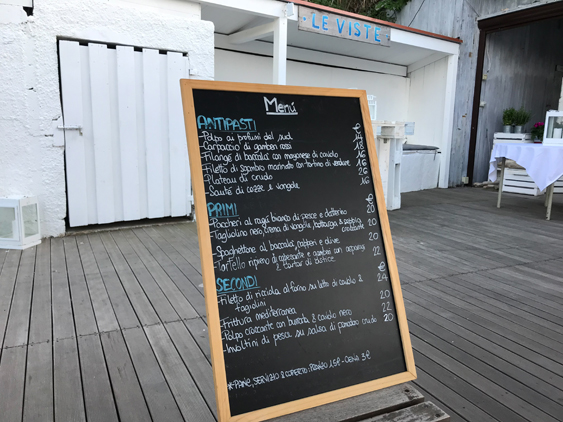 LE VISTE
Menú
ANTIPASTI €
-Polpo ai profumi del sud 14
-Carpaccio di gamberi rossi 18
-Filangé di baccalà con maionese di cavolo 16
-Filetto di sgombro marinato con tortino di verdure 16
-Plateau di crudo 26
-Sauté di cozze e vongole 16
PRIMI €
-Paccheri al ragù bianco di pesce e datterino 20
-Tagliolino nero, crema di vongole, bottarga &
croccante 20
-Spaghettone al baccalà, capperi e olive 20
-Tortello ripieno di e gamberi con asparagi
& tartar di 22
SECONDI €
-Filetto di ricciola al forno su letto di cavolo &
fagiolini 24
-Frittura mediterranea 20
-Polpo croccante con burrata & cavolo nero 22
-Involtini di pesce su salsa di pomodoro crudo 20
*PANE, SERVIZIO & COPERTO: PRANZO 1.5€ - CENA 3€